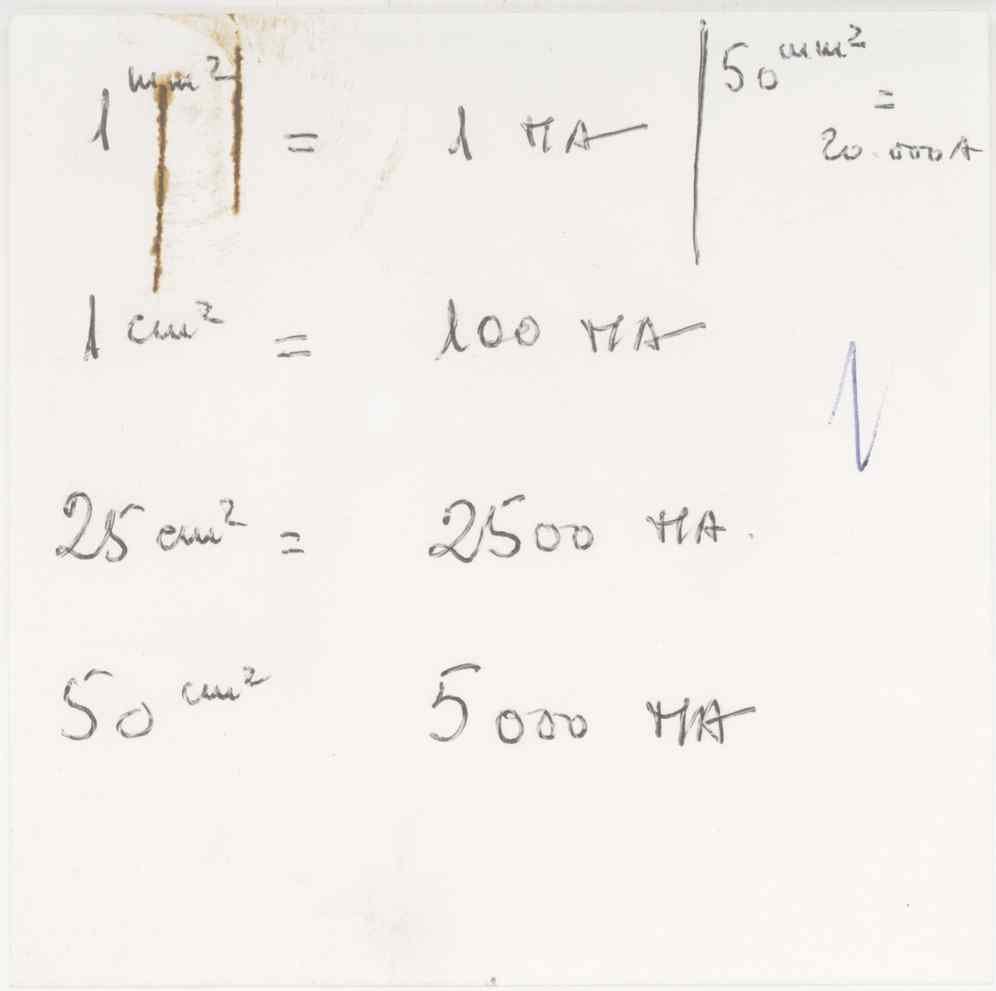 1 mm² = 1 MA
50 mm² =
20.000A
1 cm² = 100 MA
25 cm² = 2500 MA.
50 cm² 5000 MA